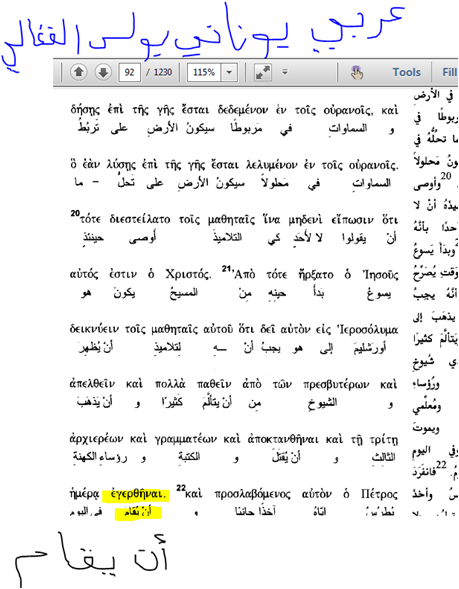 عربي يوناني بولس الفغالي
92 / 1230 115% Tools Fill
δήσῃς ἐπὶ τῆς γῆς ἔσται δεδεμένον ἐν τοῖς οὐρανοῖς, καὶ
تَربُطُ على الأرضِ سيكونُ مَربوطًا في السماواتِ و
ὃ ἐὰν λύσῃς ἐπὶ τῆς γῆς ἔσται λελυμένον ἐν τοῖς οὐρανοῖς.
ما – تَحلُّ على الأرضِ سيكونُ مَحلولاً في السماواتِ
20τότε διεστείλατο τοῖς μαθηταῖς ἵνα μηδενὶ εἴπωσιν ὅτι
حينئذٍ أوصى التلاميذَ كي لا لأحَدٍ يقولوا أن
αὐτός ἐστιν ὁ Χριστός. 21Ἀπὸ τότε ἤρξατο ὁ Ἰησοῦς
هو يكونُ المسيحُ مِنْ حينِهِ بَدأَ يسوعُ
δεικνύειν τοῖς μαθηταῖς αὐτοῦ ὅτι δεῖ αὐτὸν εἰς Ἱεροσόλυμα
أنْ يُظهِرَ لِتلاميذِ ـهِ أنْ يجبُ هو إلى أورشليمَ
ἀπελθεῖν καὶ πολλὰ παθεῖν ἀπὸ τῶν πρεσβυτέρων καὶ
أنْ يَذهَبَ و كثيرًا أنْ يتألَّمَ مِن الشيوخِ و
ἀρχιερέων καὶ γραμματέων καὶ ἀποκτανθῆναι καὶ τῇ τρίτῃ
رؤساءِ الكهنةِ و الكتبةِ و أنْ يُقتَلَ و الثالثِ
ἡμέρᾳ ἐγερθῆναι. 22καὶ προσλαβόμενος αὐτὸν ὁ Πέτρος
في اليوم أنْ يُقامَ و آخذًا جانبًا إيّاهُ بُطرُسُ
في الأرضِ
مربوطًا في
ما تحلُّهُ في
محلولاً
20وأوصى
أنْ لا
بأنَّهُ
وبدأَ يَسوعُ
يُصَرِّحُ
أنَّهُ يجبُ
يذهَبَ إلى
يتألَّمَ كثيرًا
شيوخِ
ورُؤساءِ
ومُعلِّمي
ويموتَ
اليومِ
فانفَرَدَ
وأخذَ
أن يقام